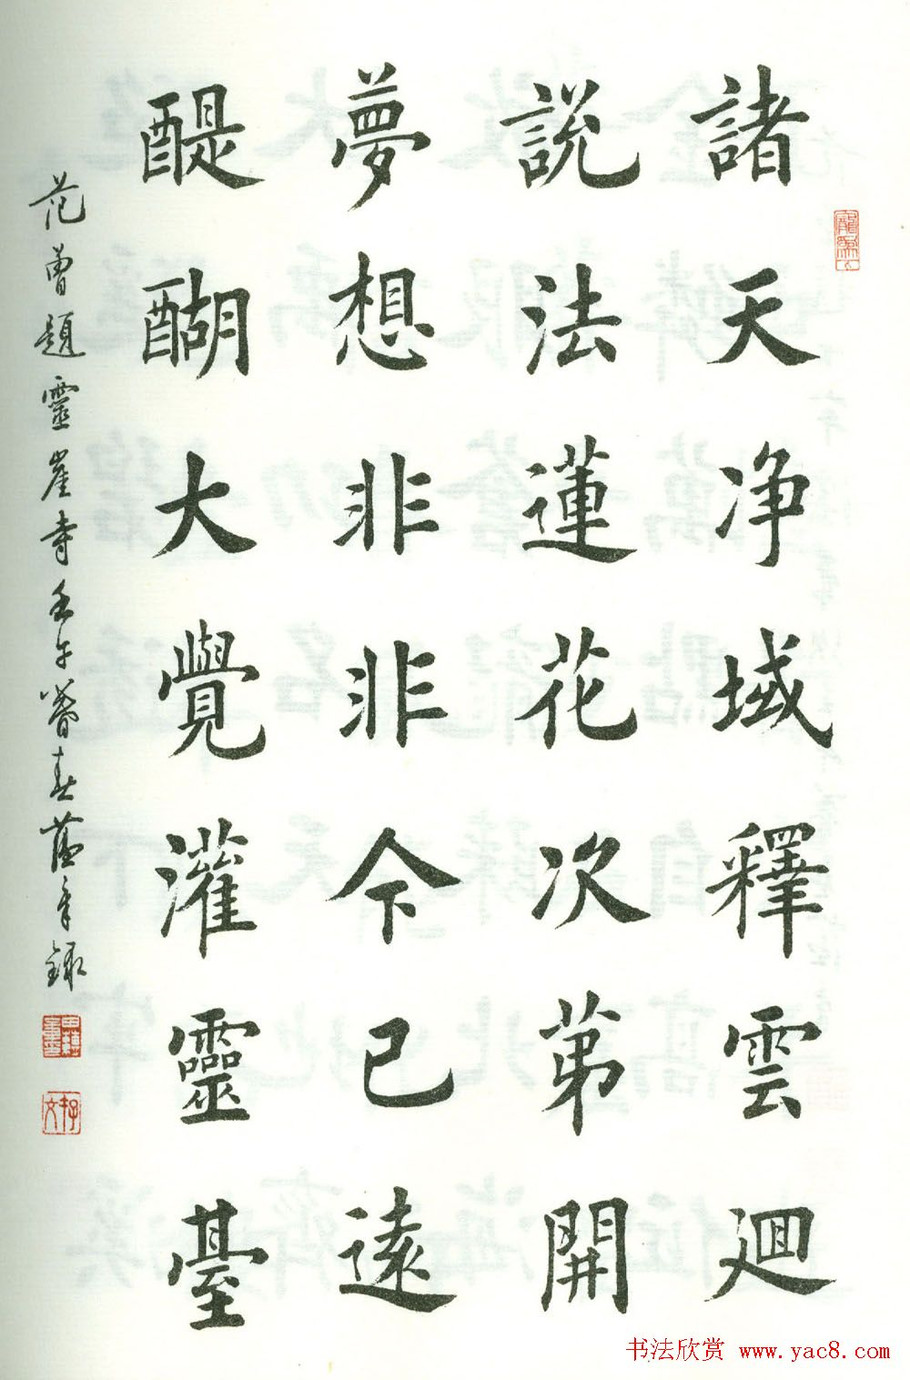 諸天净域釋雲廻
說法蓮花次苐開
夢想非非今已遠
醍醐大覺灌靈臺
范曾題靈崖寺壬午暮春蔭亭錄
书法欣赏 www.yac8.com